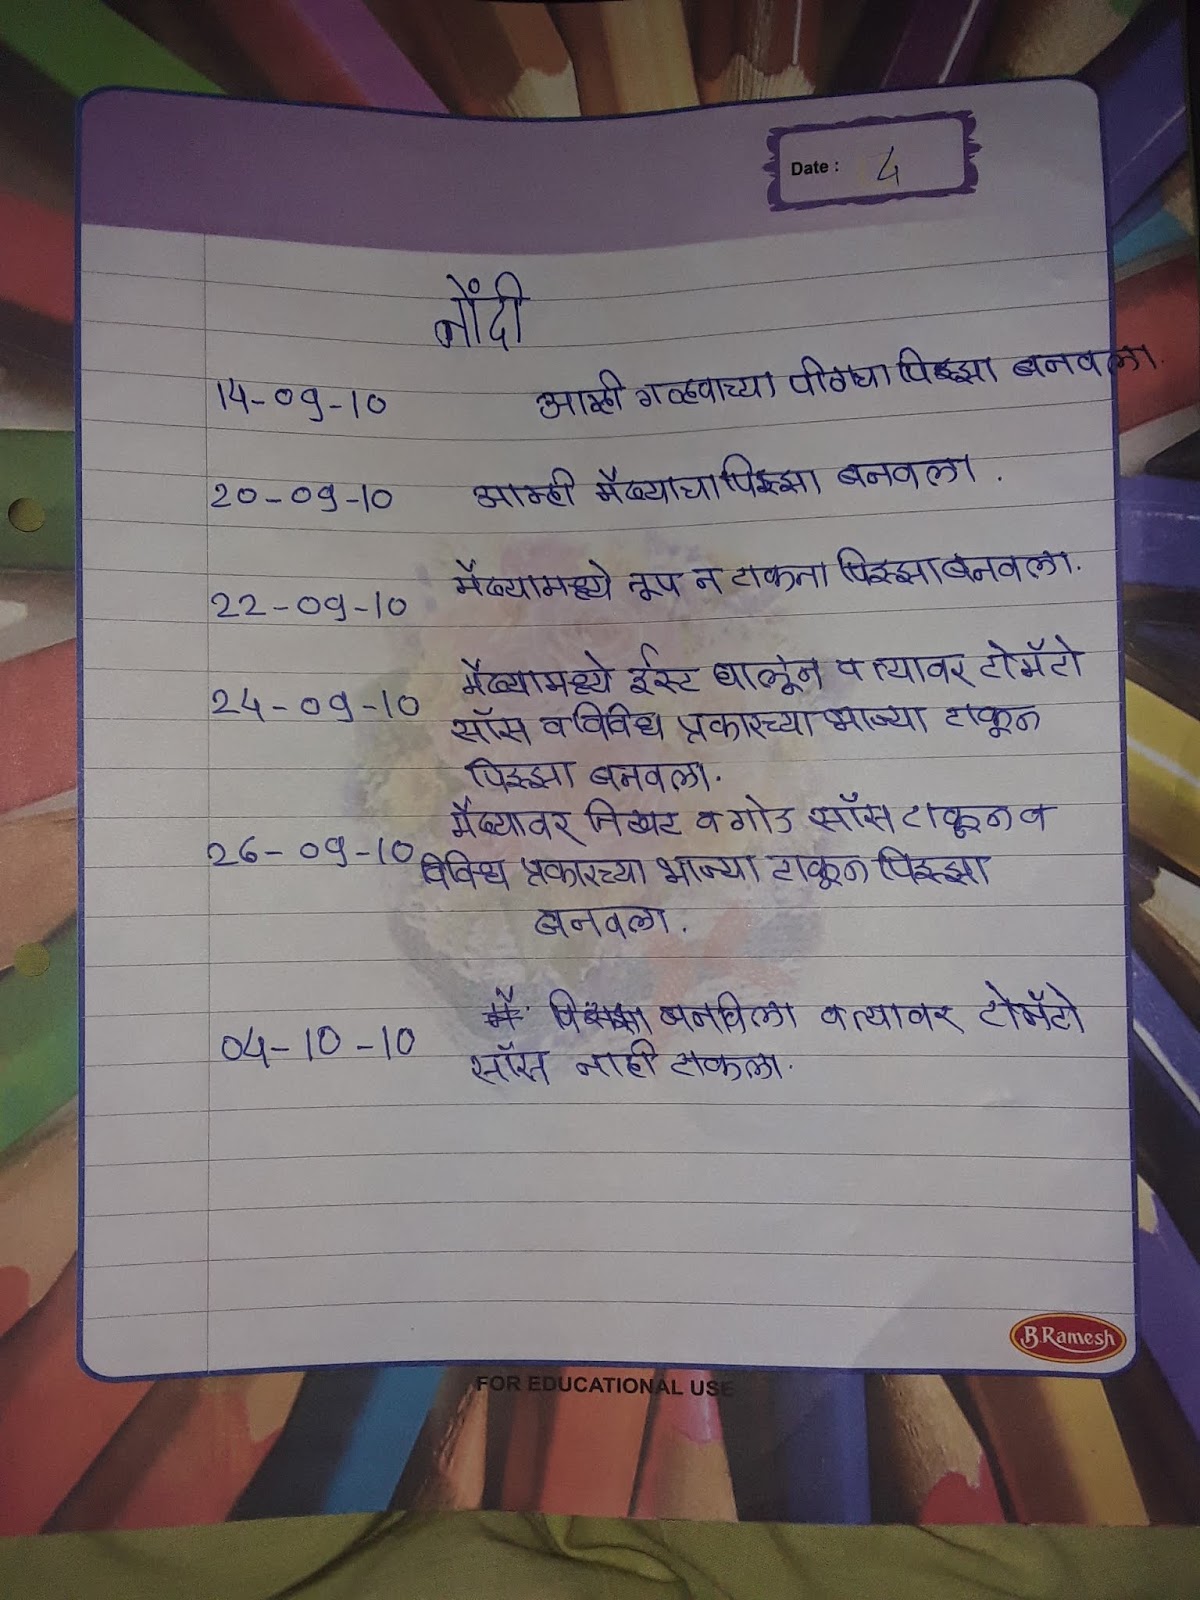 Date : 4
नोंदी
14-09-10 आम्ही गव्हाच्या पीठाचा पिझ्झा बनवला.
20-09-10 आम्ही मैद्याचा पिझ्झा बनवला.
22-09-10 मैद्यामध्ये तूप न टाकता पिझ्झा बनवला.
मैद्यामध्ये ईस्ट घालून व त्यावर टोमॅटो
24-09-10 सॉस व विविध प्रकारच्या भाज्या टाकून
पिझ्झा बनवला.
मैद्यावर तिखट व गोड सॉस टाकून व
26-09-10 विविध प्रकारच्या भाज्या टाकून पिझ्झा
बनवला.
पिझ्झा बनविला व त्यावर टोमॅटो
04-10-10 सॉस नाही टाकला.
B Ramesh
FOR EDUCATIONAL USE